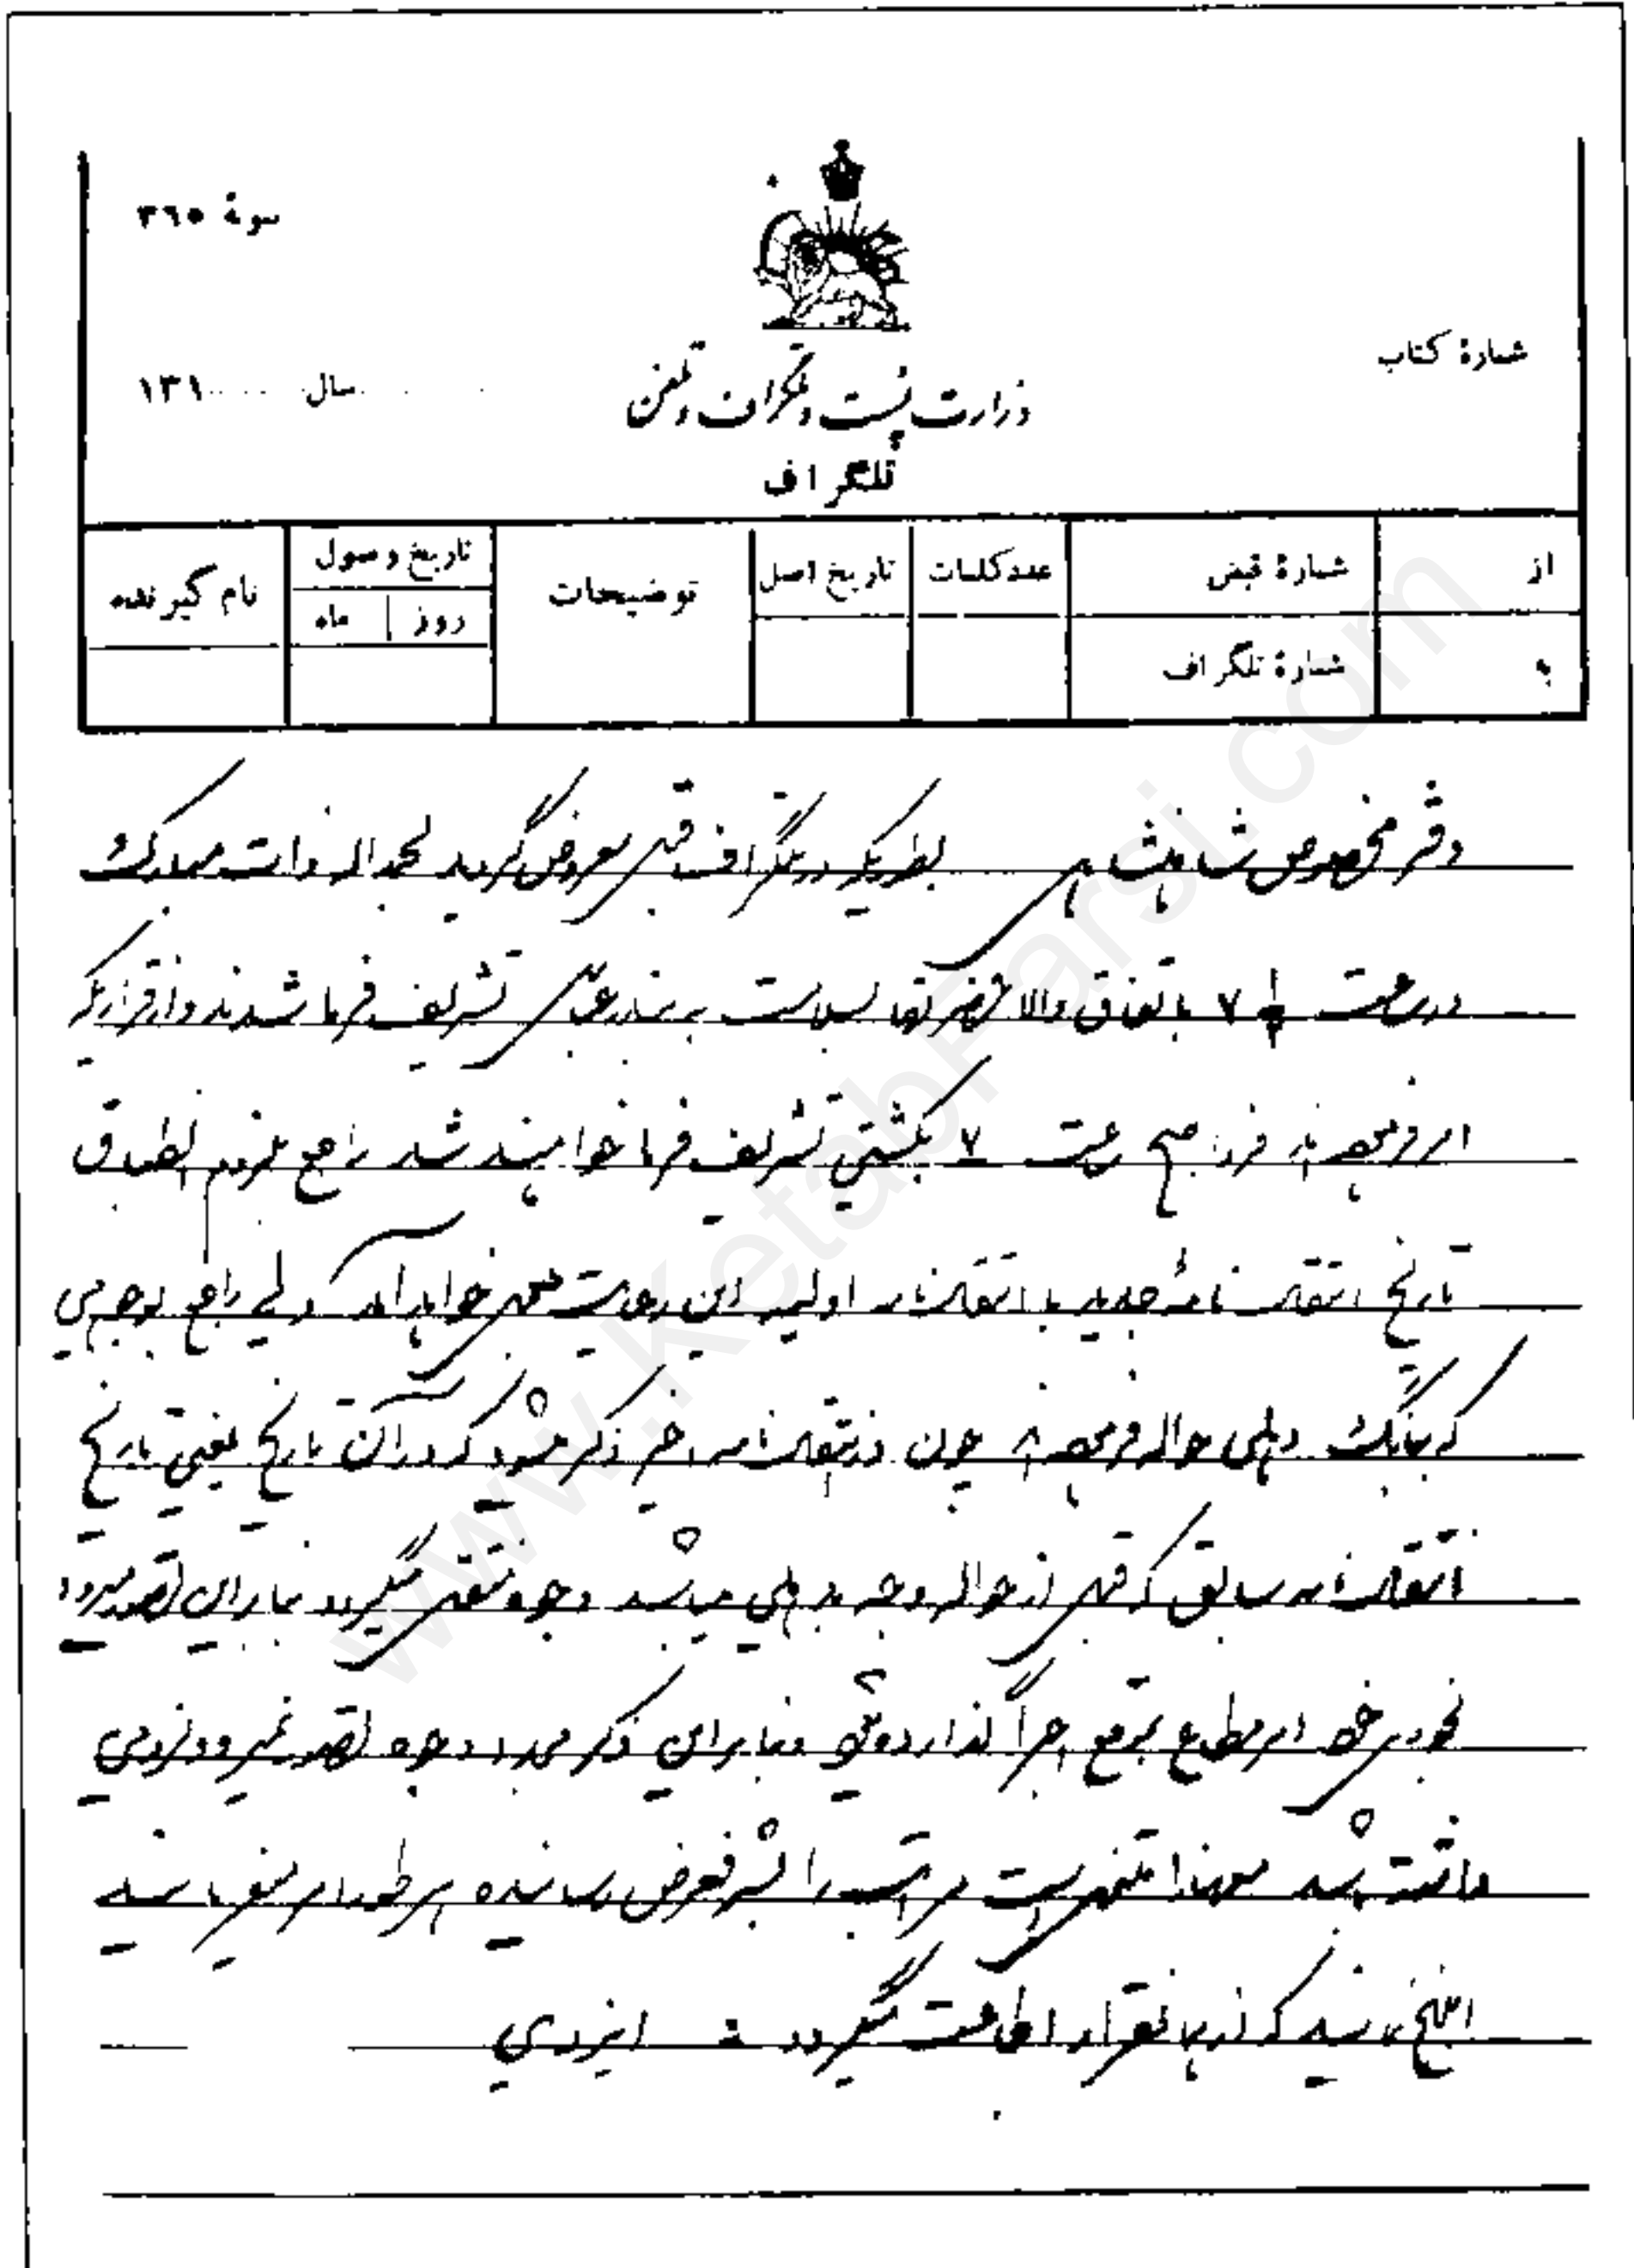 سوهٔ ۳٦٥
شمارهٔ کتاب
سال ۱۳۱
وزارت پست و تلگراف و تلفن
تلگراف
از
شمارهٔ قبض
عدد کلمات
تاریخ اصل
توضیحات
تاریخ وصول
نام گیرنده
روز
ماه
به
شمارهٔ تلگراف
دفتر مخصوص شاهنشاهی بطوریکه در تلگراف قبل معروض گردید بحمداله ذات مبارک
در ساعت ۷ باتفاق والاحضرتها بسلامت به بندرعباس تشریف فرما شدند و از قراریکه
امر فرمودند فردا صبح ساعت ۷ بکشتی تشریف فرما خواهند شد راجع بلزوم انطباق
تاریخ انتقال نامهٔ جدید با انتقال نامه اولیه این رعایت بعمل خواهد آمد ولی راجع بوجوهی
که ببانک دهلی حواله فرموده‌اند چون در انتقال نامه اخیر ذکر میشود که در آن تاریخ یعنی تاریخ
انتقال نامه سابق که قبل از حواله وجه به دهلی میباشد وجوه منتقل میگردد بنابراین تصور میرود
امر مطاع بموقع اجرا گذارده و بنابراین ذکر وجوه تصور نمیرود لزومی
داشته باشد معهذا متمنی است مراتب را بشرفعرض رسانیده هر طور امر میفرمایند
ابلاغ نمائید که از همانقرار اطاعت میگردد ـ ایزدی
www.KetabFarsi.com